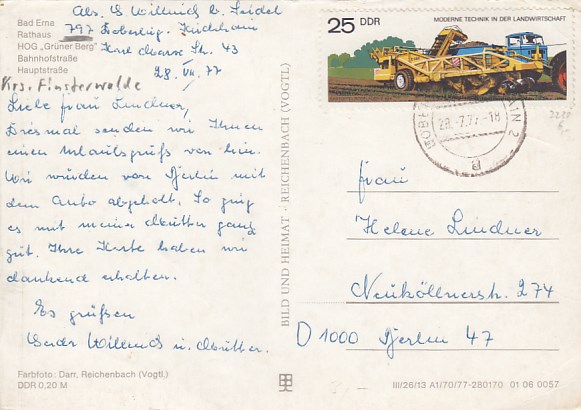 Bad Erna
Rathaus
HOG „Grüner Berg"
Bahnhofstraße
Hauptstraße
Abs. G Willnich b. Seidel
797 Doberlug-Kirchhain
Karl Marx Str. 43
28. VII. 77
Krs. Finsterwalde
Liebe Frau Lindner,
Diesmal senden wir Ihnen
einen Urlaubsgruß von hier.
Wir wurden von Berlin mit
dem Auto abgeholt. So ging
es mit meiner Mutter ganz
gut. Ihre Karte haben wir
dankend erhalten.
Es grüßen
Gerda Willnich u. Mutter.
Farbfoto: Darr, Reichenbach (Vogtl.)
DDR 0,20 M
BILD UND HEIMAT · REICHENBACH (VOGTL)
25 DDR
MODERNE TECHNIK IN DER LANDWIRTSCHAFT
28.-7.77-18
a
Frau
Helene Lindner
Neuköllnerstr. 274
D 1000 Berlin 47
III/26/13 A1/70/77-280170 01 06 0057